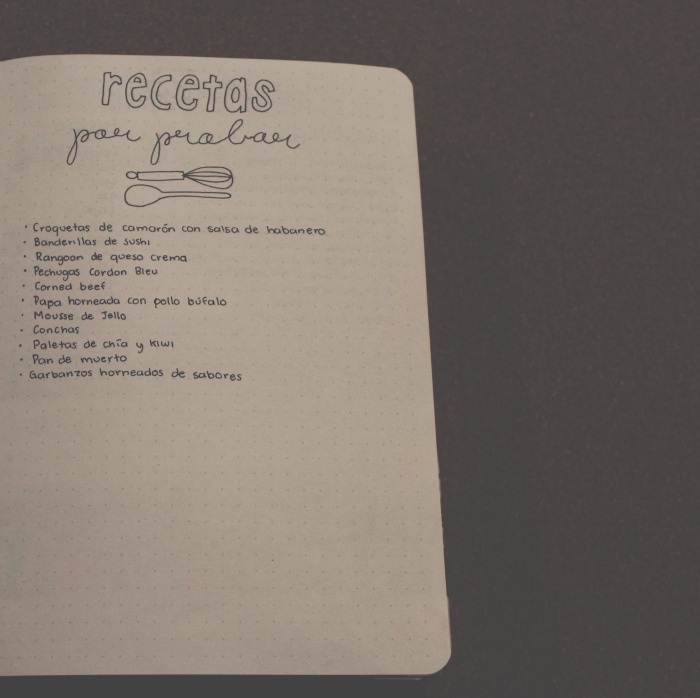 recetas
por probar
· Croquetas de camarón con salsa de habanero
· Banderillas de sushi
· Rangoon de queso crema
· Pechugas Cordon Bleu
· Corned beef
· Papa horneada con pollo búfalo
· Mousse de Jello
· Conchas
· Paletas de chía y kiwi
· Pan de muerto
· Garbanzos horneados de sabores